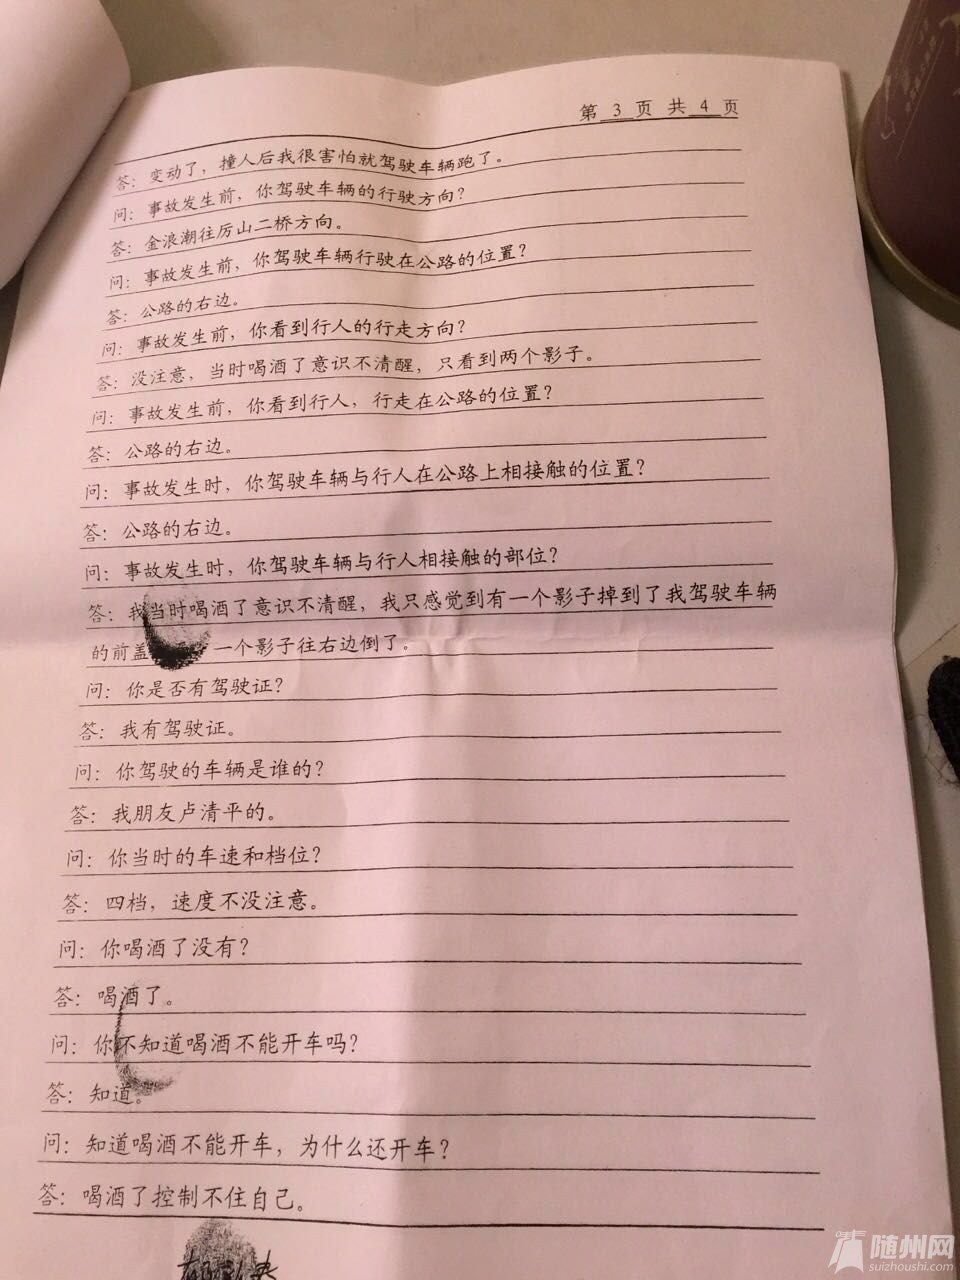 第 3 页 共 4 页
答：变动了，撞人后我很害怕就驾驶车辆跑了。
问：事故发生前，你驾驶车辆的行驶方向？
答：金浪潮往厉山二桥方向。
问：事故发生前，你驾驶车辆行驶在公路的位置？
答：公路的右边。
问：事故发生前，你看到行人的行走方向？
答：没注意，当时喝酒了意识不清醒，只看到两个影子。
问：事故发生前，你看到行人，行走在公路的位置？
答：公路的右边。
问：事故发生时，你驾驶车辆与行人在公路上相接触的位置？
答：公路的右边。
问：事故发生时，你驾驶车辆与行人相接触的部位？
答：我当时喝酒了意识不清醒，我只感觉到有一个影子掉到了我驾驶车辆
的前盖 一个影子往右边倒了。
问：你是否有驾驶证？
答：我有驾驶证。
问：你驾驶的车辆是谁的？
答：我朋友卢清平的。
问：你当时的车速和档位？
答：四档，速度不没注意。
问：你喝酒了没有？
答：喝酒了。
问：你不知道喝酒不能开车吗？
答：知道。
问：知道喝酒不能开车，为什么还开车？
答：喝酒了控制不住自己。
随州网
suizhoushi.com